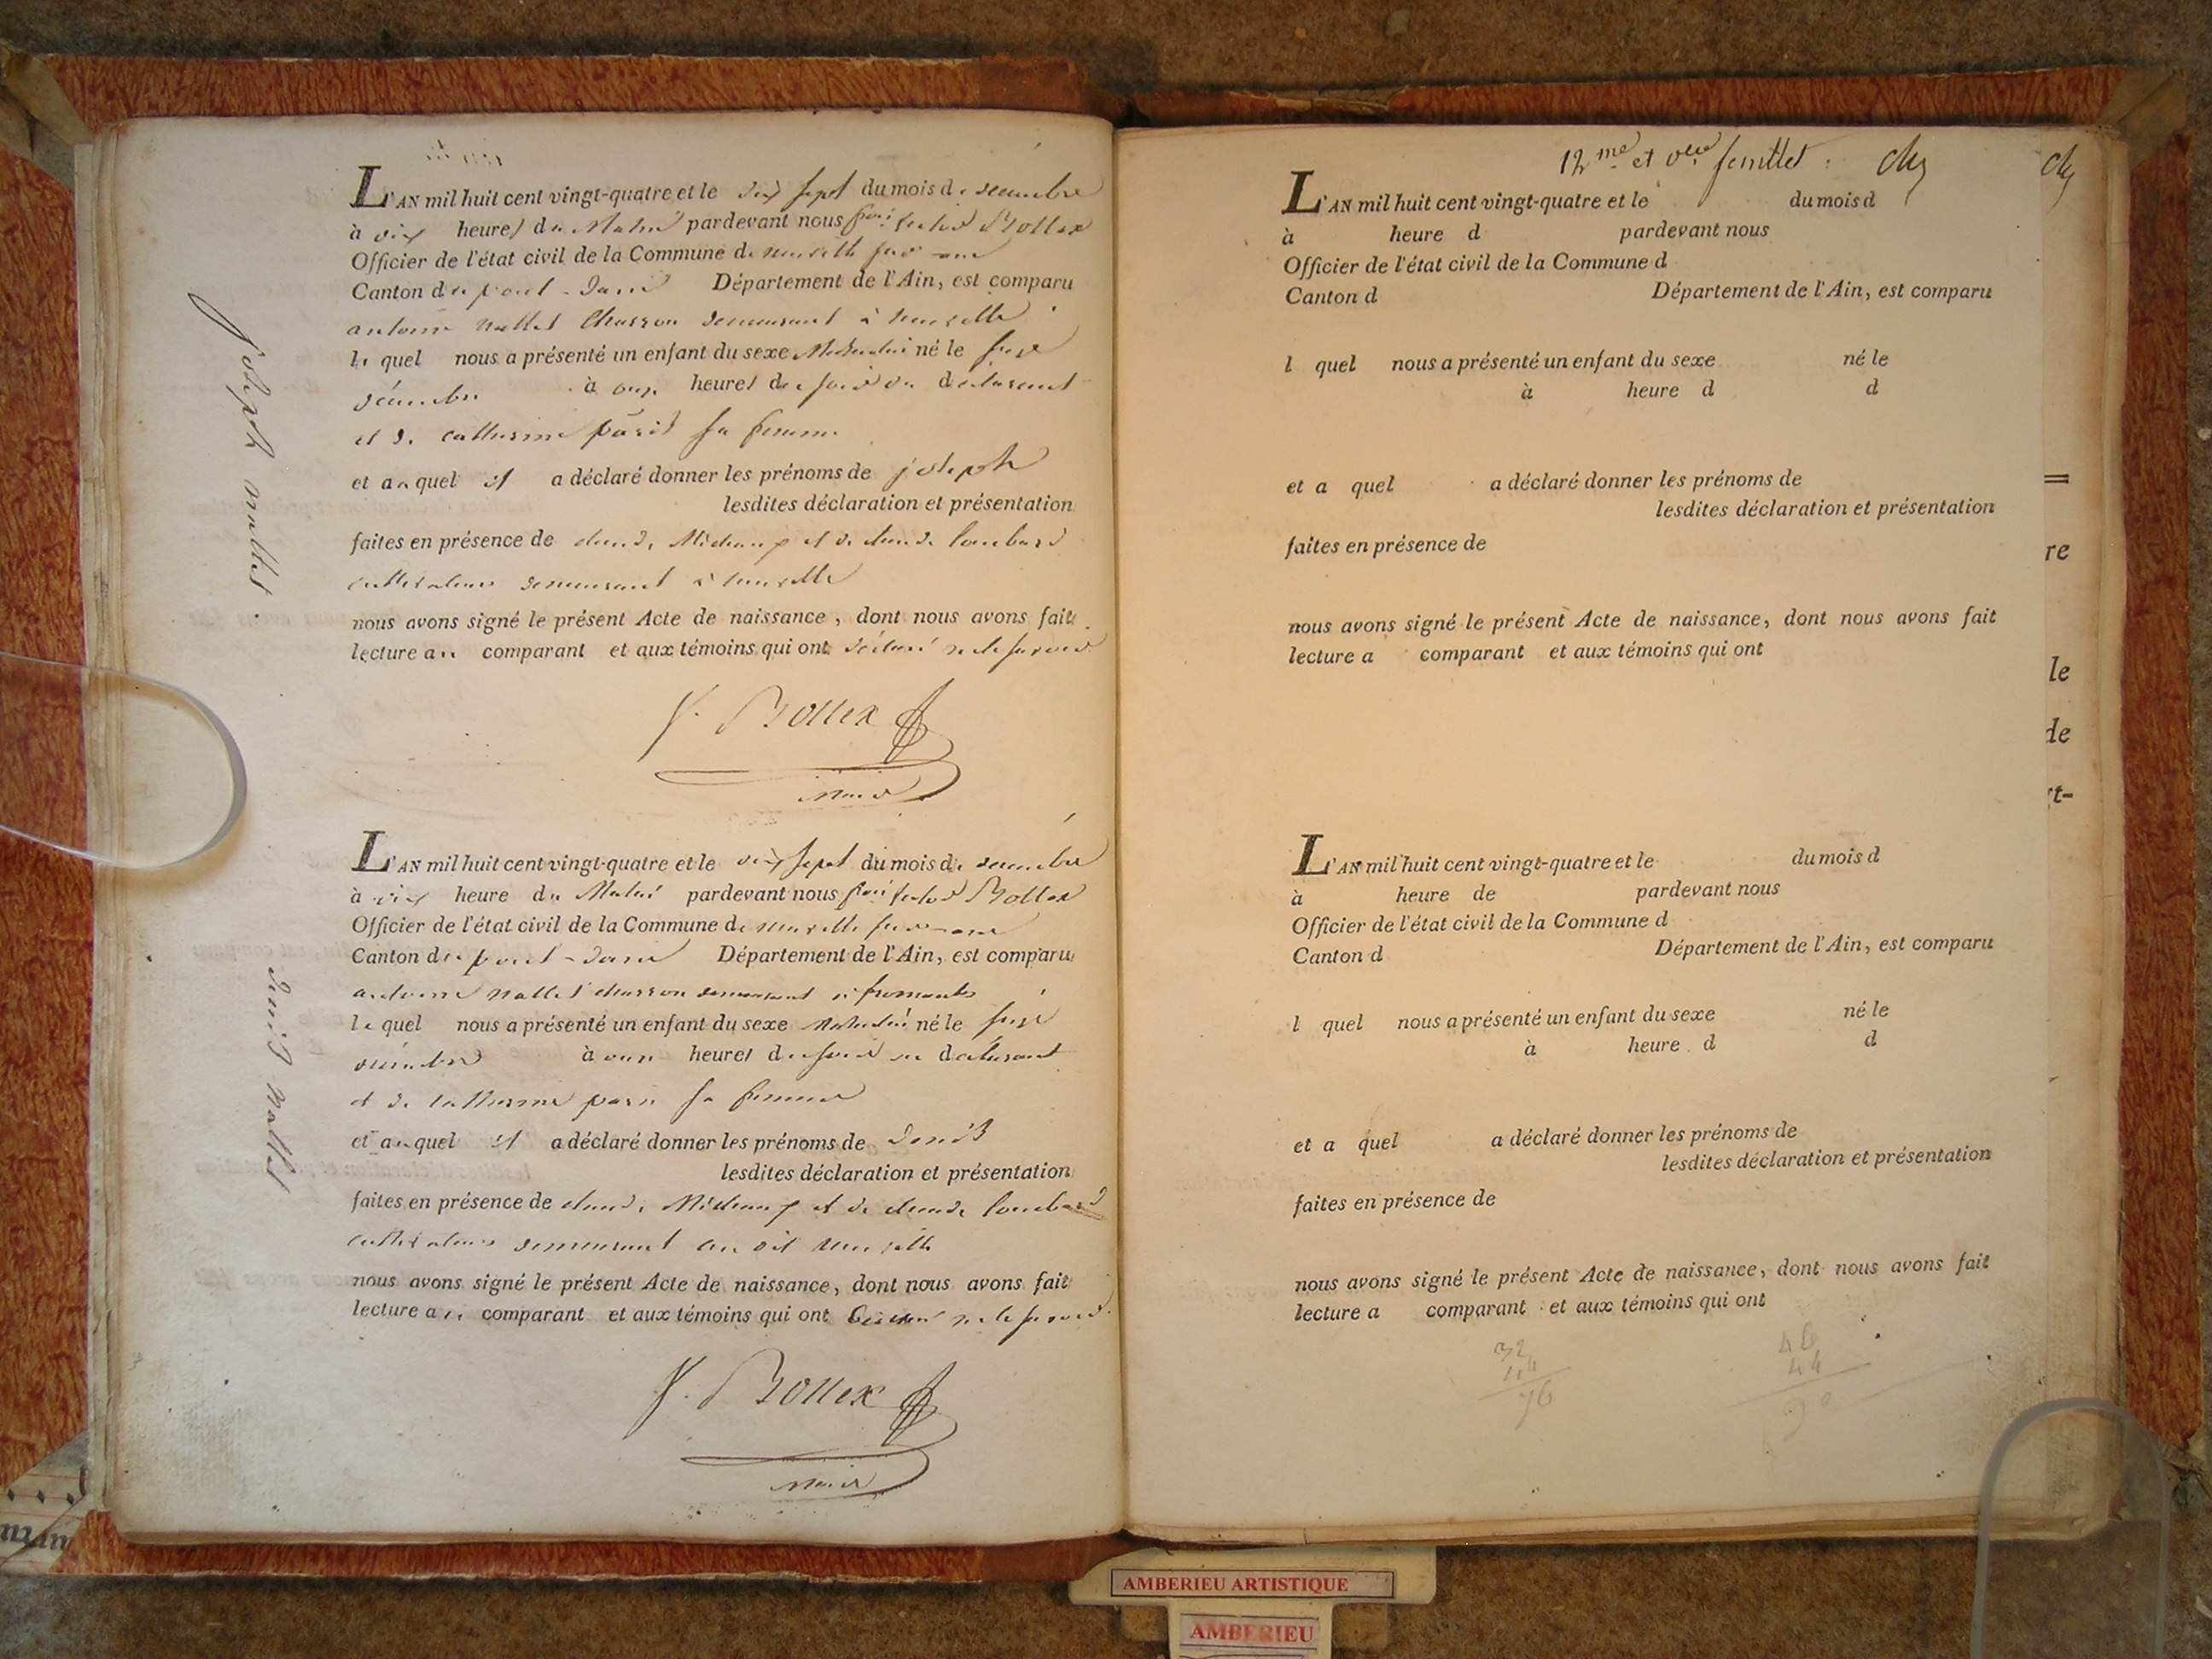 L'AN mil huit cent vingt-quatre et le dix sept du mois de decembre
à dix heures du Matin pardevant nous Bollex
Officier de l'état civil de la Commune de neuville sur ain
Canton de pont-dain Département de l'Ain, est comparu
antoine nallet Charron demeurant à neuville
le quel nous a présenté un enfant du sexe Masculin né le seize
décembre à onze heures du soir du déclarant
et de catherine paris sa femme
et auquel il a déclaré donner les prénoms de joseph
lesdites déclaration et présentation
faites en présence de claude Michaux et de claude lombard
cultivateurs demeurant à neuville
nous avons signé le présent Acte de naissance, dont nous avons fait
lecture au comparant et aux témoins qui ont déclaré ne le savoir
Bollex
maire
joseph nallet.
L'AN mil huit cent vingt-quatre et le dix sept du mois de decembre
à dix heure du Matin pardevant nous Bollex
Officier de l'état civil de la Commune de neuville sur ain
Canton de pont-dain Département de l'Ain, est comparu
antoine nallet charron demeurant à fromente
le quel nous a présenté un enfant du sexe Masculin né le seize
décembre à onze heures du soir du déclarant
et de catherine paris sa femme
et auquel il a déclaré donner les prénoms de denis
lesdites déclaration et présentation
faites en présence de claude Michaux et de claude lombard
cultivateurs demeurant au dit neuville
nous avons signé le présent Acte de naissance, dont nous avons fait
lecture au comparant et aux témoins qui ont déclaré ne le savoir
Bollex
maire
denis nallet
12me et feuillet :
L'AN mil huit cent vingt-quatre et le du mois d
à heure d pardevant nous
Officier de l'état civil de la Commune d
Canton d Département de l'Ain, est comparu
l quel nous a présenté un enfant du sexe né le
à heure d d
et a quel a déclaré donner les prénoms de
lesdites déclaration et présentation
faites en présence de
nous avons signé le présent Acte de naissance, dont nous avons fait
lecture a comparant et aux témoins qui ont
L'AN mil huit cent vingt-quatre et le du mois d
à heure de pardevant nous
Officier de l'état civil de la Commune d
Canton d Département de l'Ain, est comparu
l quel nous a présenté un enfant du sexe né le
à heure d d
et a quel a déclaré donner les prénoms de
lesdites déclaration et présentation
faites en présence de
nous avons signé le présent Acte de naissance, dont nous avons fait
lecture a comparant et aux témoins qui ont
32
44
76
46
44
re
le
de
t-
AMBERIEU ARTISTIQUE
AMBERIEU